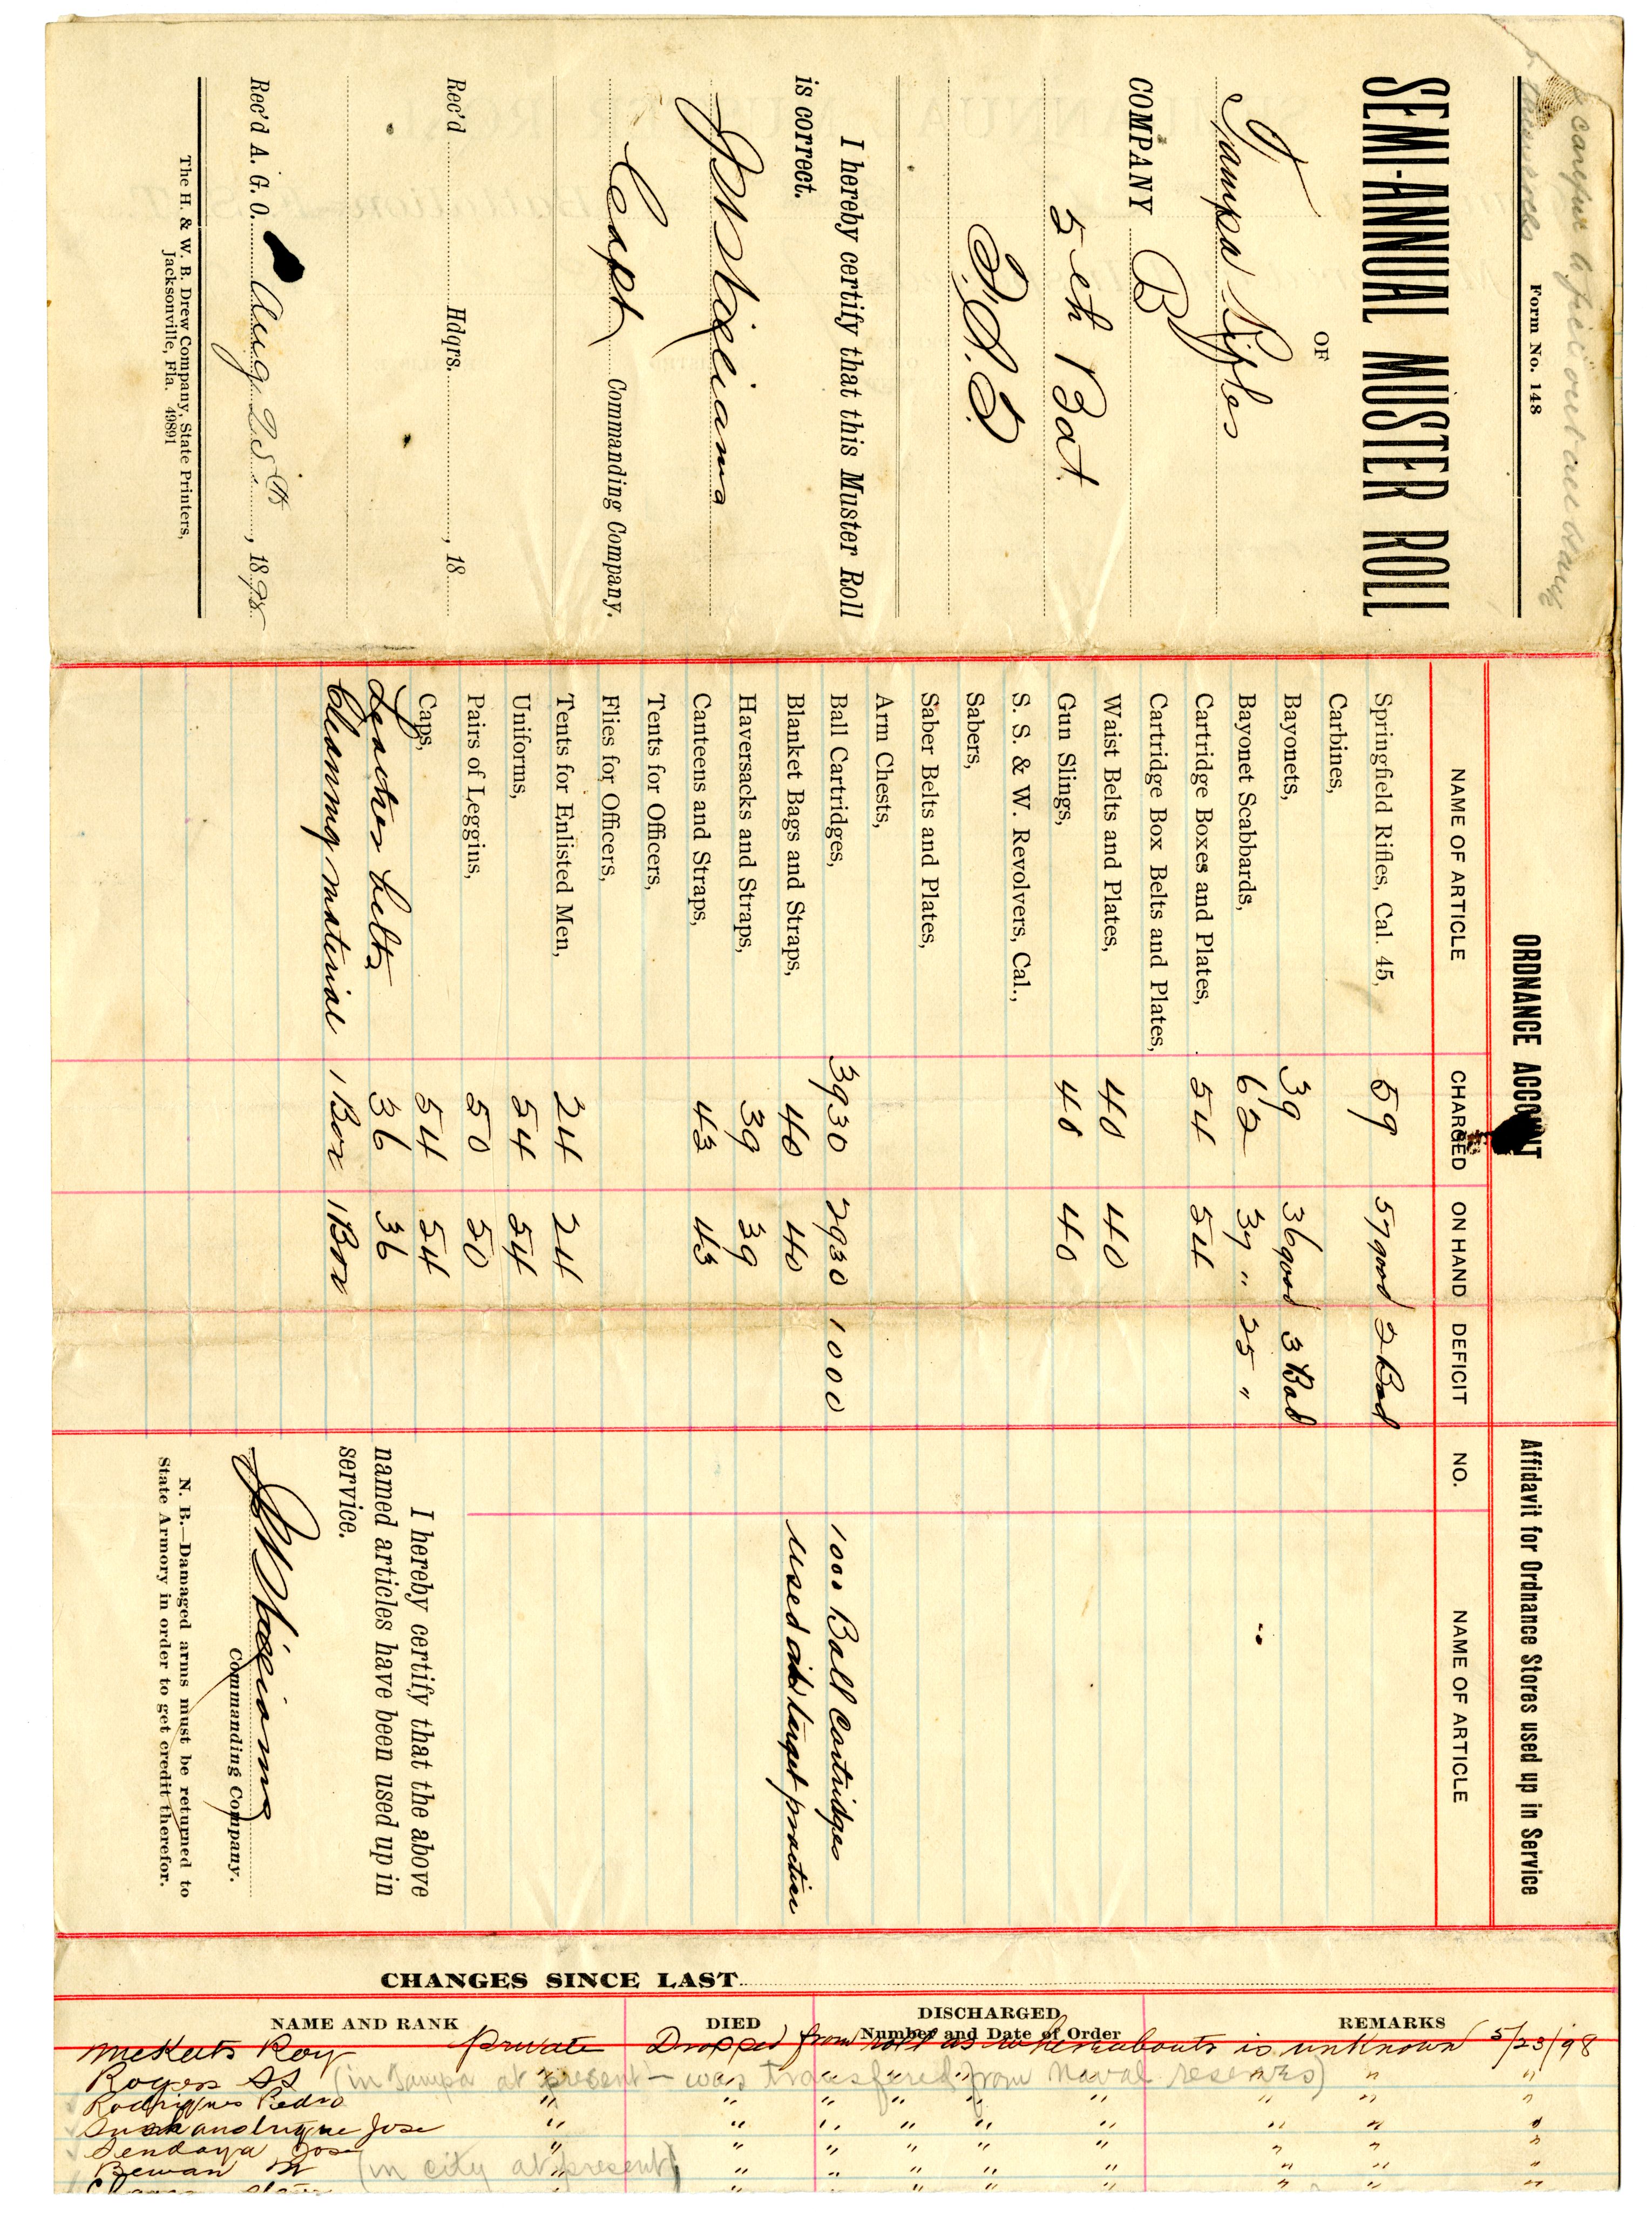 Form No. 148
SEMI-ANNUAL MUSTER ROLL
OF
Tampa Rifles
COMPANY B
5 eth Bat
F. S. T.
I hereby certify that this Muster Roll
is correct.
Capt Commanding Company.
Rec'd Hdqrs. , 18
Rec'd A. G. O. Aug 25th , 1898
The H. & W. B. Drew Company, State Printers,
Jacksonville, Fla. 49891
ORDNANCE ACCOUNT
NAME OF ARTICLE CHARGED ON HAND DEFICIT
Springfield Rifles, Cal. 45, 59 57 good 2 Bad
Carbines,
Bayonets, 39 36 good 3 Bad
Bayonet Scabbards, 62 37 " 25 "
Cartridge Boxes and Plates, 54 54
Cartridge Box Belts and Plates,
Waist Belts and Plates, 40 40
Gun Slings, 40 40
S. S. & W. Revolvers, Cal.,
Sabers,
Saber Belts and Plates,
Arm Chests,
Ball Cartridges, 3930 2930 1000
Blanket Bags and Straps, 40 40
Haversacks and Straps, 39 39
Canteens and Straps, 43 43
Tents for Officers,
Flies for Officers,
Tents for Enlisted Men, 24 24
Uniforms, 54 54
Pairs of Leggins, 50 50
Caps, 54 54
Leather belts 36 36
Cleaning material 1 Box 1 Box
Affidavit for Ordnance Stores used up in Service
NO. NAME OF ARTICLE
1000 Ball Cartridges
used at target practice
I hereby certify that the above
named articles have been used up in
service.
Commanding Company.
N. B.—Damaged arms must be returned to
State Armory in order to get credit therefor.
CHANGES SINCE LAST
NAME AND RANK DIED DISCHARGED Number and Date of Order REMARKS
Roy Private Dropped from roll as whereabouts is unknown 5/23/98
Rogers (in Tampa at present - was transfered from Naval reserves) " " " " " " " "
Rodrigues Pedro " " " " " " " "
Jose " " " " " " " "
Sendoya Jose " " " " " " " "
Bewan M (in city at present) " " " " " " " "